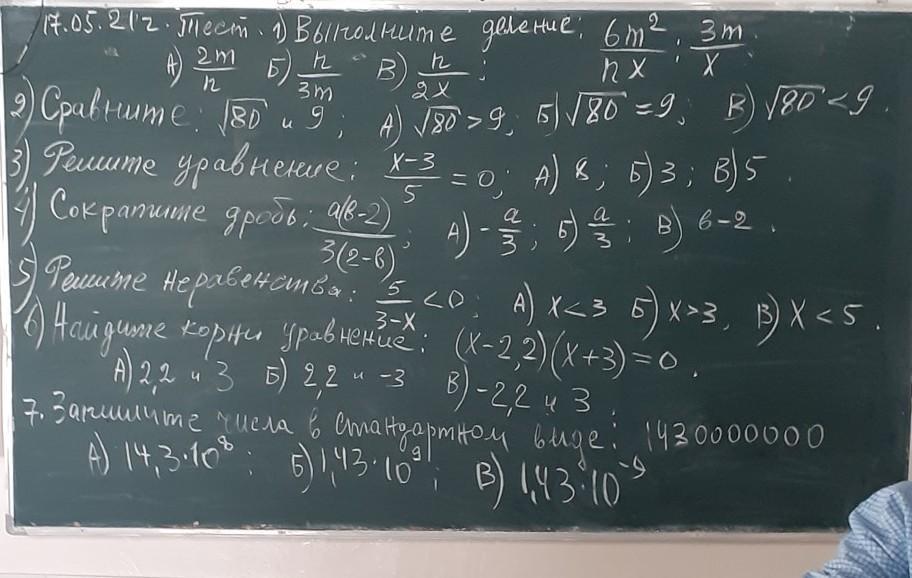 17.05.21г. Тест. 1) Выполните деление: 6m²/nx : 3m/x.
А) 2m/n Б) n/3m В) n/2x;
2) Сравните: √80 и 9; А) √80 > 9; Б) √80 = 9; В) √80 < 9.
3) Решите уравнение: x-3/5 = 0; А) 8; Б) 3; В) 5.
4) Сократите дробь: a(b-2)/3(2-b); А) -a/3; Б) a/3; В) b-2.
5) Решите неравенства: 5/3-x < 0; А) x<3 Б) x>3, В) x < 5.
6) Найдите корни уравнение: (x-2,2)(x+3)=0.
А) 2,2 и 3 Б) 2,2 и -3 В) -2,2 и 3.
7. Запишите числа в стандартном виде: 1430000000
А) 14,3·10⁸; Б) 1,43·10⁹; В) 1,43·10⁻⁹